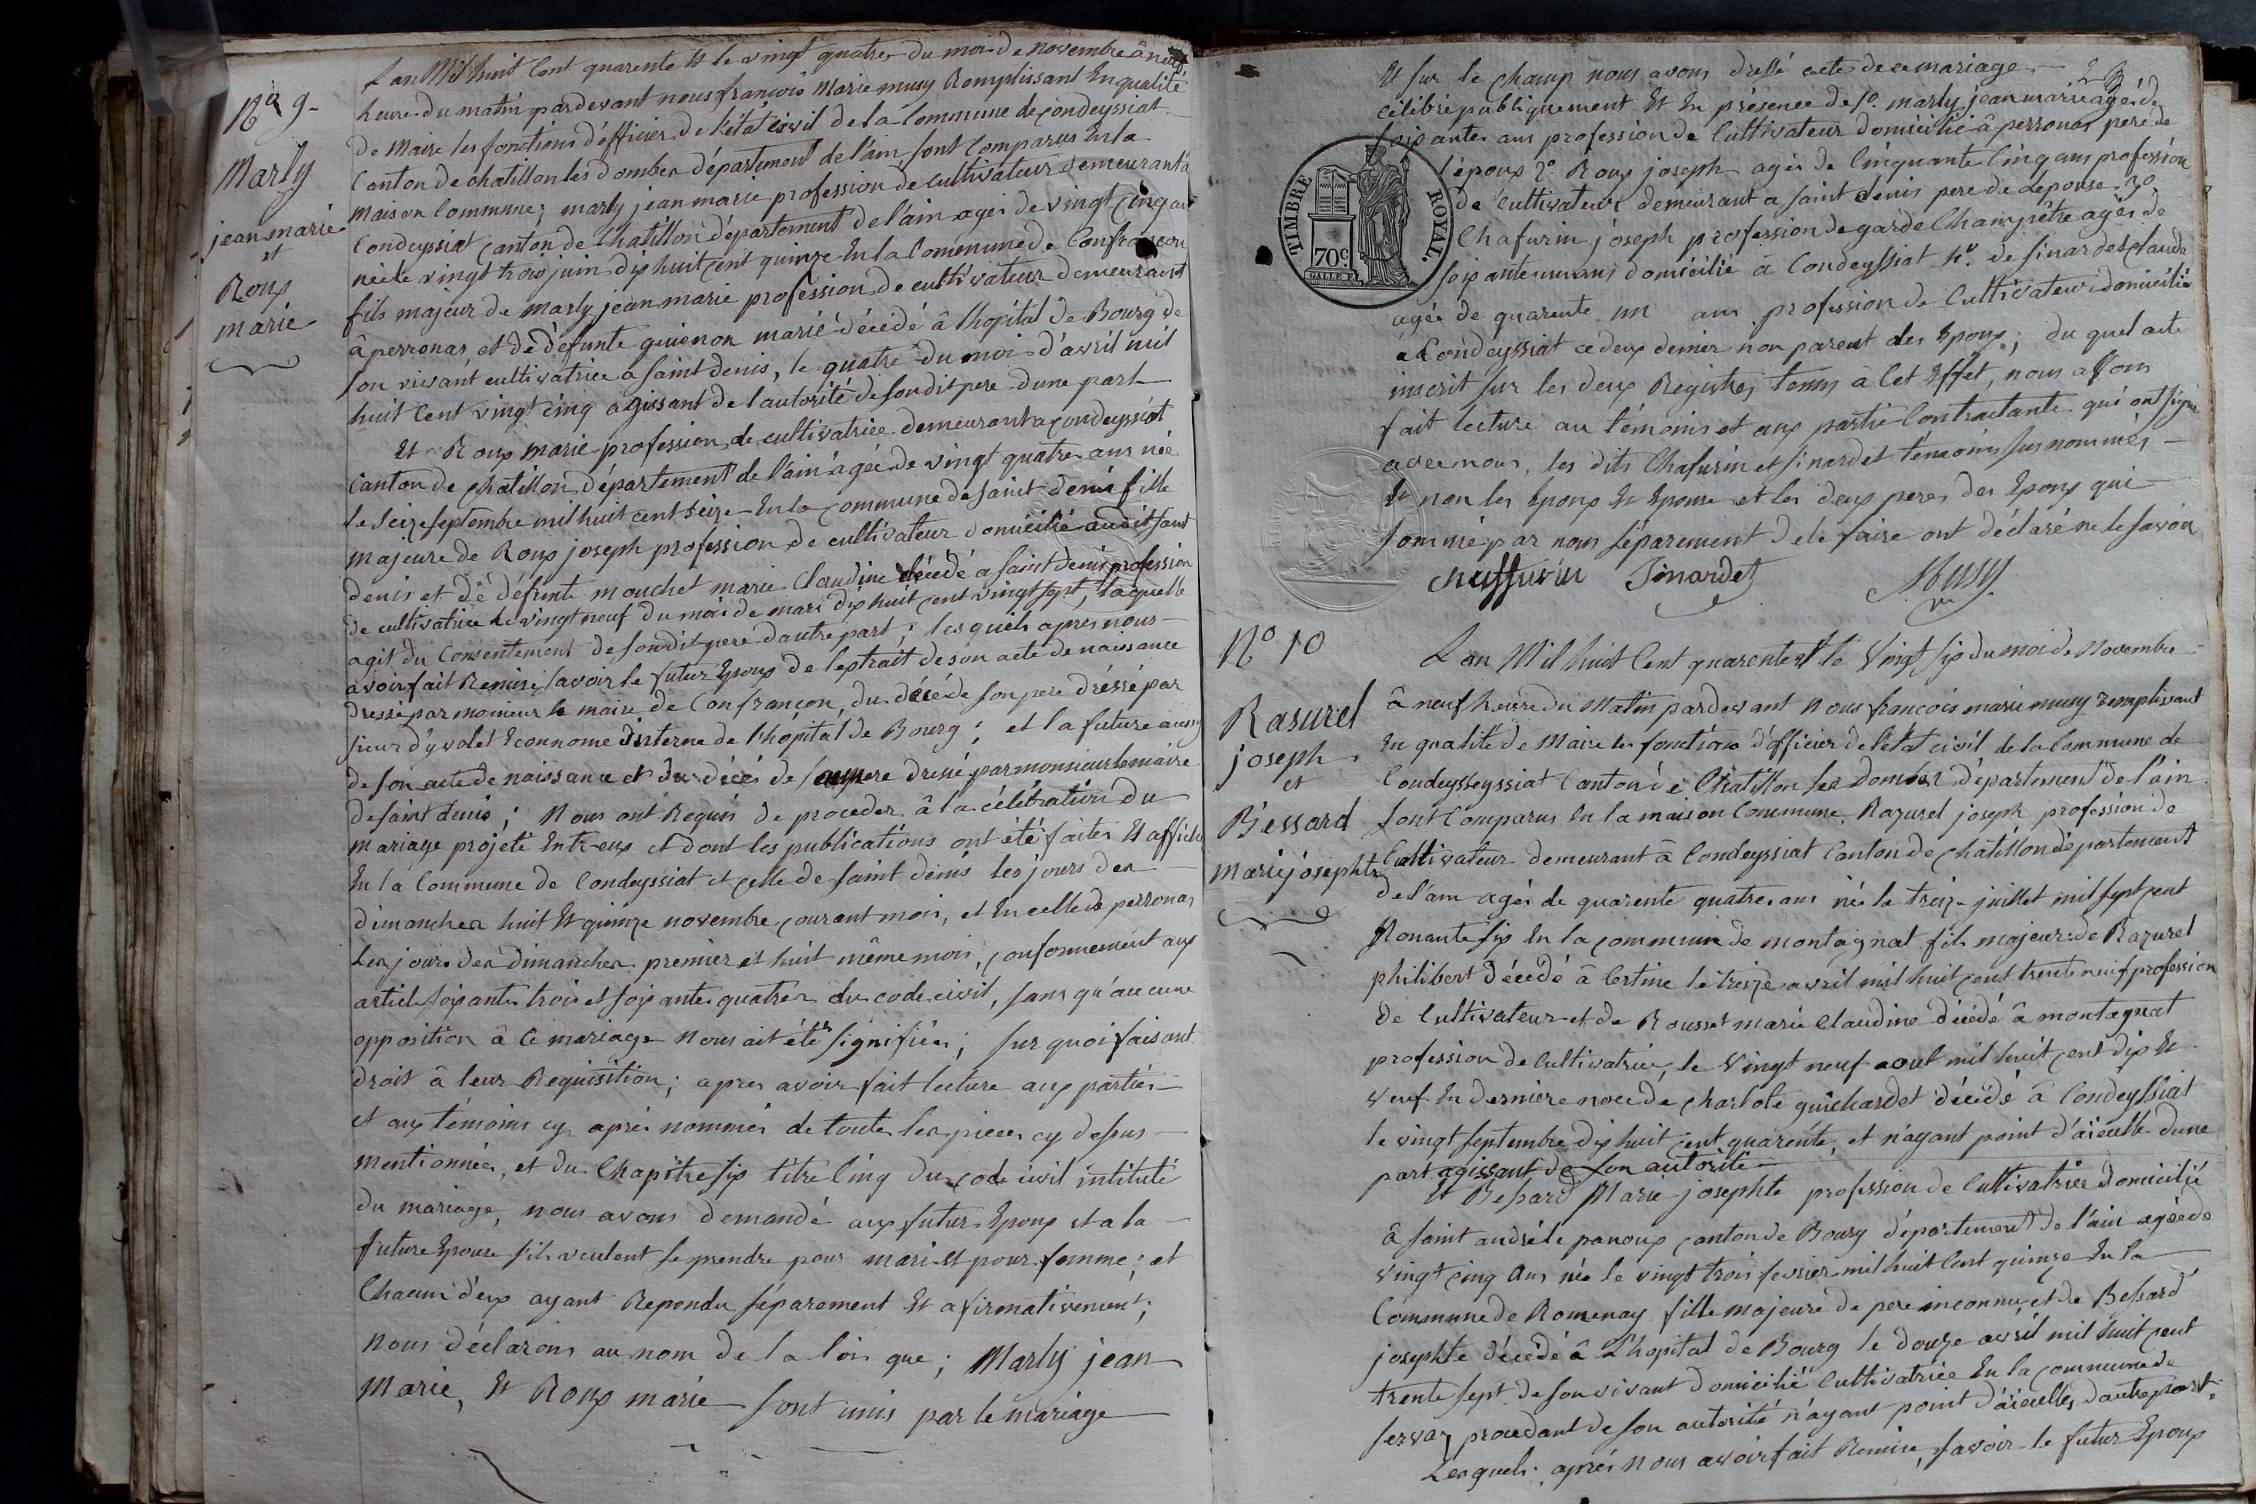 N° 9
Marly
jean marie
et
Roux
marie
L'an Mil huit Cent quarente Et le vingt quatre du moi de novembre â neuf
heure du matin pardevant nous françois Marie musy Remplissant En qualité
de Maire les fonctions d'officier de l'état civil de la Commune de Condeyssiat
Canton de chatillon les dombes département de l'ain, sont Comparus En la
maison Commune; marly jean marie profession de cultivateur demeurant à
Condeyssiat Canton de Chatillon département de l'ain agée de vingt Cinq ans
née le vingt trois juin dix huit Cent quinze En la Commune de Confrançon
fils majeur de Marly jean marie profession de cultivateur demeurant
à perronas, et de défunte guienon marié décédé â l'hopital de Bourg de
son vivant cultivatrice a saint denis, le quatre du moi d'avril mil
huit Cent vingt cinq agissant de l'autorité de son dit pere d'une part
Et Roux marie profession de cultivatrice demeurant a Condeyssiat
Canton de Chatillon département de l'ain agée de vingt quatre ans née
le seize septembre mil huit cent seize En la Commune de saint denis fille
majeure de Roux joseph profession de cultivateur domicilié au dit saint
denis et de défunte mouchet marie Claudine décédé a saint denis profession
de cultivatrice le vingt neuf du moi de mars dix huit Cent vingt sept, laquelle
agit du Consentement de son dit pere d'autre part; les quels apres nous
avoir fait Remise, savoir le futur Epoux de l'extrait de son acte de naissance
dressé par monsieur le maire de Confrançon, du décé de son pere dréssé par
sieur d'yvolet Econnome interne de l'hôpital de Bourg; et la future aussy
de son acte de naissance et du décés de sa mere dressé par monsieur le maire
de saint denis; Nous ont Requis de proceder â la célébration du
mariage projeté Entr-eux et dont les publications ont été faites Et affiché
En la Commune de Condeyssiat et celle de saint denis les jours des
dimanches huit Et quinze novembre courant mois, et En celle de perronas
Les jours des dimanches premier et huit même mois, conformement aux
articles soixante trois et soixante quatre du code civil, sans qu'aucune
opposition â ce mariage Nous ait été signifiée; sur quoi faisant
droit â leur Requisition; apres avoir fait lecture aux parties
et aux témoins cy après nommés de toutes les pieces cy dessus
mentionnées, et du Chapitre six titre Cinq du code civil intitulé
du mariage, nous avons demandé aux futur Epoux et a la
future Epouse s'ils veulent se prendre pour mari et pour femme; et
Chacun d'eux ayant Repondu séparement Et afirmativement;
Nous déclarons au nom de la loi que; Marly jean
Marie, Et Roux marie sont unis par le mariage
Et sur le Champ nous avons dressé acte de ce mariage
célébré publiquement Et En présence de 1° marly jean marie agés de
soixante ans profession de Cultivateur domicilié â perronas pere de
l'époux 2° Roux joseph agés de Cinquante Cinq ans profession
de Cultivateur demeurant a saint denis pere de l'epouse 3°
Chafurin joseph profession de garde Champêtre agés de
soixante un ans domicilié â Condeyssiat 4° de sinardet Claude
agée de quarente un ans profession de Cultivateur domicilié
â Condeyssiat ce deux dernier non parent des Epoux; du quel acte
inscrit sur les deux Registres tenus â Cet Effet, nous avons
fait lecture au témoins et aux partie Contractante qui ont signé
avec nous, les dits Chafurin et sinardet témoins sus nommés
Et non les Epoux Et Epouse et les deux peres des Epoux qui
sommé par nous séparement de le faire ont déclaré ne le savoir
TIMBRE ROYAL.
70c.
Chaffurin Sinardet Musy
N° 10
Rasurel
joseph
et
Béssard
marie josephte
L'an Mil huit Cent quarente Et le Vingt six du moi de Novembre
â neuf heure du Matin pardevant Nous françois marie musy remplissant
En qualité de Maire les fonctions d'officier de l'état civil de la Commune de
Condeysseyssiat Canton de Chatillon les dombes département de l'ain
sont Comparus En la maison Commune, Razurel joseph profession de
Cultivateur demeurant â Condeyssiat Canton de Chatillon département
de l'ain agés de quarente quatre ans née le treize juillet mil sept cent
Nonante six En la Commune de montagnat fils majeur de Razurel
philibert décédé â Certine le treize avril mil huit Cent trente neuf profession
de Cultivateur et de Rousset marie Claudine décédé â montagnat
profession de Cultivatrice, le Vingt neuf aout mil huit cent dix Et
Veuf En derniere noce de Charlote guichardet décédé â Condeyssiat
le vingt septembre dix huit cent quarente, et n'ayant point d'aieulle d'une
part agissant de son autorité
Et Bessard Marie josephte profession de Cultivatrice domicilié
â saint andré le panoux canton de Bourg département de l'ain agée de
vingt cinq Ans née le vingt trois fevrier mil huit Cent quinze En la
Commune de Romenay fille majeure de pere inconnu, et de Bessard
josephte décédé â l'hopital de Bourg le douze avril mil huit cent
trente sept de son vivant domicilié Cultivatrice En la commune de
servas procedant de son autorité n'ayant point d'aieulles d'autre part.
Lesquels; après Nous avoir fait Remise, savoir le futur Epoux